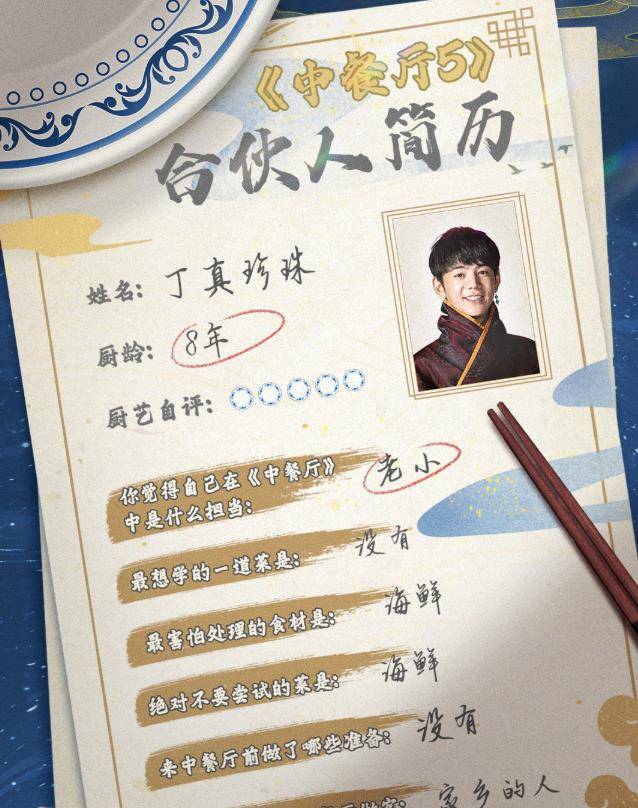 《中餐厅5》
合伙人简历
姓名: 丁真珍珠
厨龄: 8年
厨艺自评:
你觉得自己在《中餐厅》 老小
中是什么担当:
最想学的一道菜是: 没有
最害怕处理的食材是: 海鲜
绝对不要尝试的菜是: 海鲜
来中餐厅前做了哪些准备: 没有
家乡的人